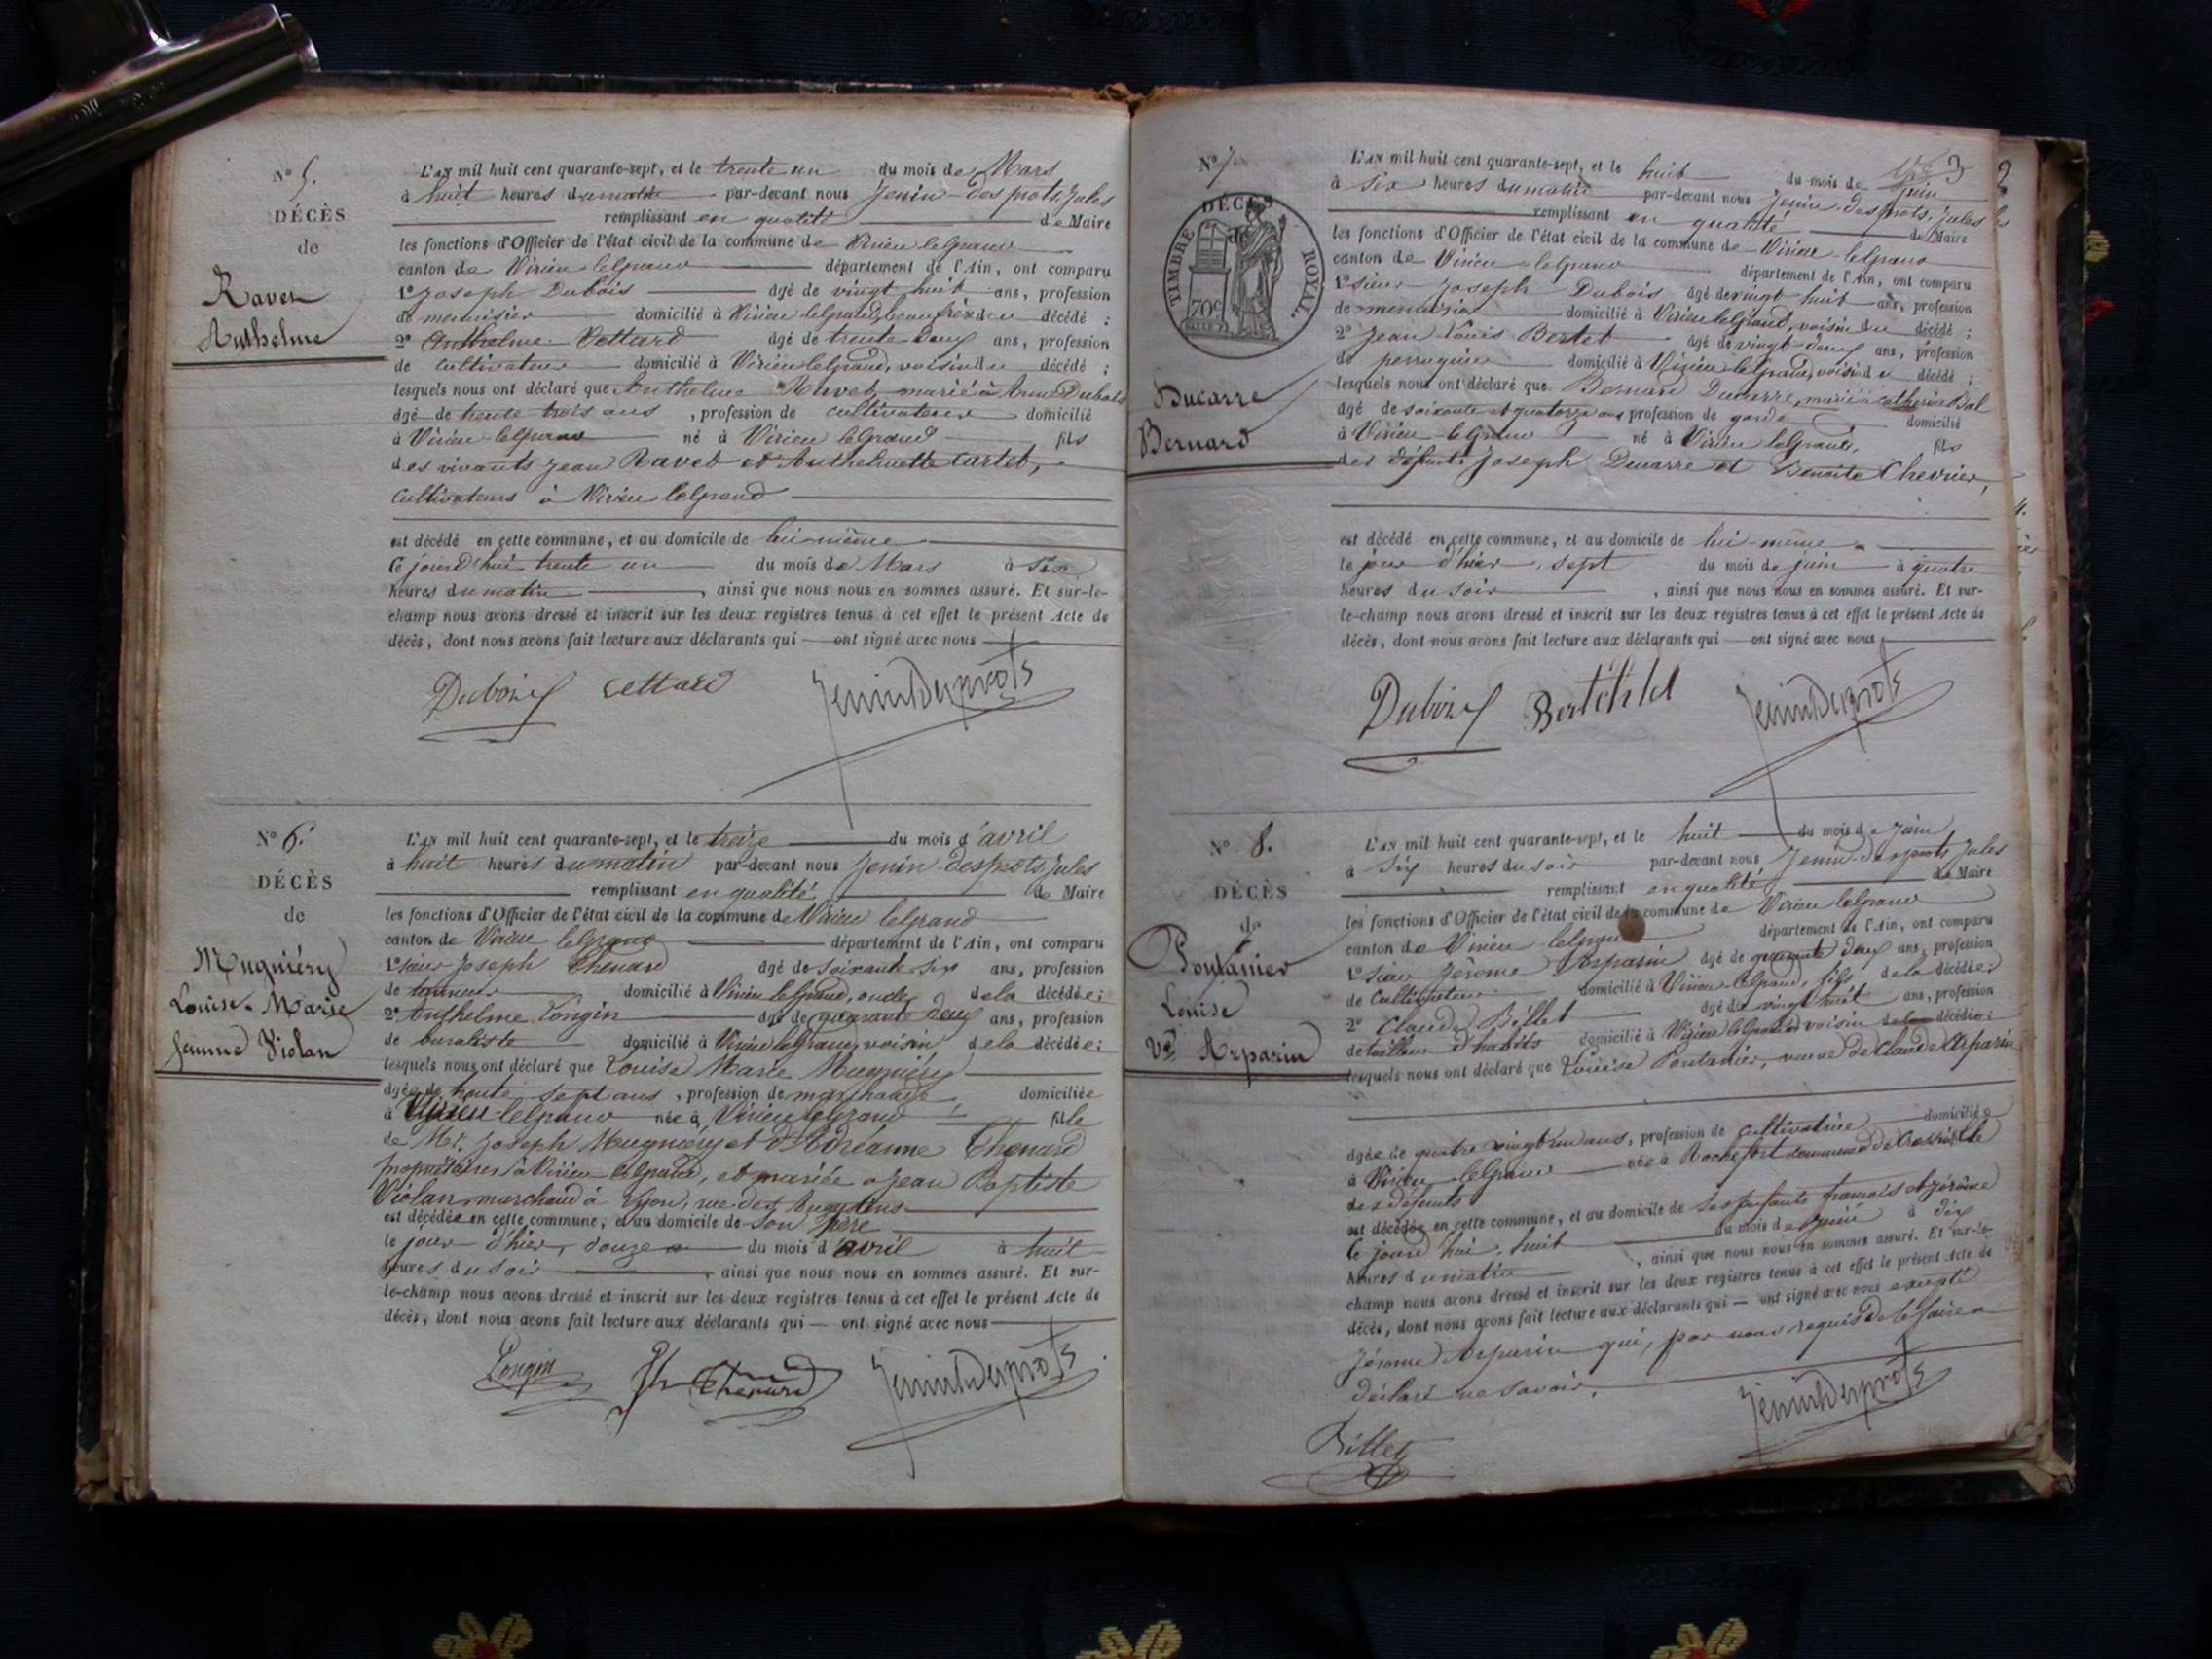 N° 5.
DÉCÈS
de
Ravet
Anthelme
L'AN mil huit cent quarante-sept, et le trente un du mois de Mars
à huit heures du matin par-devant nous Jenin-Desprots, Jules
remplissant en qualité de Maire
les fonctions d'Officier de l'état civil de la commune de Virieu le grand
canton de Virieu le grand département de l'Ain, ont comparu
1° Joseph Dubois agé de vingt huit ans, profession
de menuisier domicilié à Virieu le grand, beau frère du décédé ;
2° Anthelme Vettard agé de trente deux ans, profession
de cultivateur domicilié à Virieu le grand, voisin du décédé ;
lesquels nous ont déclaré que Anthelme Ravet, marié à Anne Dubois
agé de trente trois ans , profession de cultivateur domicilié
à Virieu-le grand né à Virieu le Grand fils
des vivants Jean Ravet et Anthelmette Cartet,
cultivateurs à Virieu le grand
est décédé en cette commune, et au domicile de lui-même
ce jourd'hui trente un du mois de Mars à six
heures du matin , ainsi que nous nous en sommes assuré. Et sur-le-
champ nous avons dressé et inscrit sur les deux registres tenus à cet effet le présent Acte de
décès, dont nous avons fait lecture aux déclarants qui — ont signé avec nous
Dubois Vettard JeninDesprots
N° 6.
DÉCÈS
de
Mugniéry
Louise-Marie
femme Violan
L'AN mil huit cent quarante-sept, et le treize du mois d'avril
à huit heures du matin par-devant nous Jenin-Desprots, Jules
remplissant en qualité de Maire
les fonctions d'Officier de l'état civil de la commune de Virieu le grand
canton de Virieu le grand département de l'Ain, ont comparu
1° sieur Joseph Chenard agé de soixante-six ans, profession
de tanneur domicilié à Virieu le grand, oncle de la décédée ;
2° Anthelme Longin agé de quarante deux ans, profession
de buraliste domicilié à Virieu le grand, voisin de la décédée ;
lesquels nous ont déclaré que Louise Marie Mugniéry
agée de trente sept ans , profession de marchande, domiciliée
à Virieu-le grand née à Virieu le grand fille
de Mr. Joseph Mugniéry et d'Adréanne Chenard
propriétaires à Virieu le grand, et mariée à Jean Baptiste
Violan, marchand à Lyon, rue des Augustins
est décédée en cette commune, et au domicile de son père
le jour d'hier, douze du mois d'avril à huit
heures du soir , ainsi que nous nous en sommes assuré. Et sur-
le-champ nous avons dressé et inscrit sur les deux registres tenus à cet effet le présent Acte de
décès, dont nous avons fait lecture aux déclarants qui — ont signé avec nous
Longin Jh Chenard JeninDesprots
3
N° 7.
DÉCÈS
de
TIMBRE ROYAL.
70c
Ducarre
Bernard
L'AN mil huit cent quarante-sept, et le huit du mois de juin
à six heures du matin par-devant nous Jenin-Desprots, Jules
remplissant en qualité de Maire
les fonctions d'Officier de l'état civil de la commune de Virieu-le grand
canton de Virieu-le grand département de l'Ain, ont comparu
1° sieur Joseph Dubois agé de vingt huit ans, profession
de menuisier domicilié à Virieu le grand, voisin du décédé ;
2° Jean Louis Bertet agé de vingt-deux ans, profession
de perruquier domicilié à Virieu le grand, voisin du décédé ;
lesquels nous ont déclaré que Bernard Ducarre, marié à Catherine Bal
agé de soixante et quatorze ans profession de garde domicilié
à Virieu-le grand né à Virieu le grand, fils
des défunts Joseph Ducarre et Benoite Chevrier,
est décédé en cette commune, et au domicile de lui-même
le jour d'hier, sept du mois de juin à quatre
heures du soir , ainsi que nous nous en sommes assuré. Et sur-
le-champ nous avons dressé et inscrit sur les deux registres tenus à cet effet le présent Acte de
décès, dont nous avons fait lecture aux déclarants qui — ont signé avec nous
Dubois JeninDesprots
N° 8.
DÉCÈS
de
Pontanier
Louise
Ve Arparin
L'AN mil huit cent quarante-sept, et le huit du mois de juin
à six heures du soir par-devant nous Jenin-Desprots, Jules
remplissant en qualité de Maire
les fonctions d'Officier de l'état civil de la commune de Virieu le grand
canton de Virieu-le grand département de l'Ain, ont comparu
1° sieur Jérome Arparin agé de quarante deux ans, profession
de cultivateur domicilié à Virieu le grand, fils de la décédée ;
2° Claude Billet agé de vingt huit ans, profession
de tailleur d'habits domicilié à Virieu le grand voisin de la décédée ;
lesquels nous ont déclaré que Louise Pontanier, veuve de Claude Arparin
agée de quatre vingt un ans, profession de cultivatrice domiciliée
à Virieu-le grand née à Rochefort commune de
des défunts
est décédée en cette commune, et au domicile de ses enfants françois et Jérôme
ce jourd'hui, huit du mois de juin à dix
heures du matin , ainsi que nous nous en sommes assuré. Et sur-le-
champ nous avons dressé et inscrit sur les deux registres tenus à cet effet le présent Acte de
décès, dont nous avons fait lecture aux déclarants qui — ont signé avec nous excepté
Jérome Arparin qui, par nous requis de le faire a
déclaré ne savoir.
Billet JeninDesprots